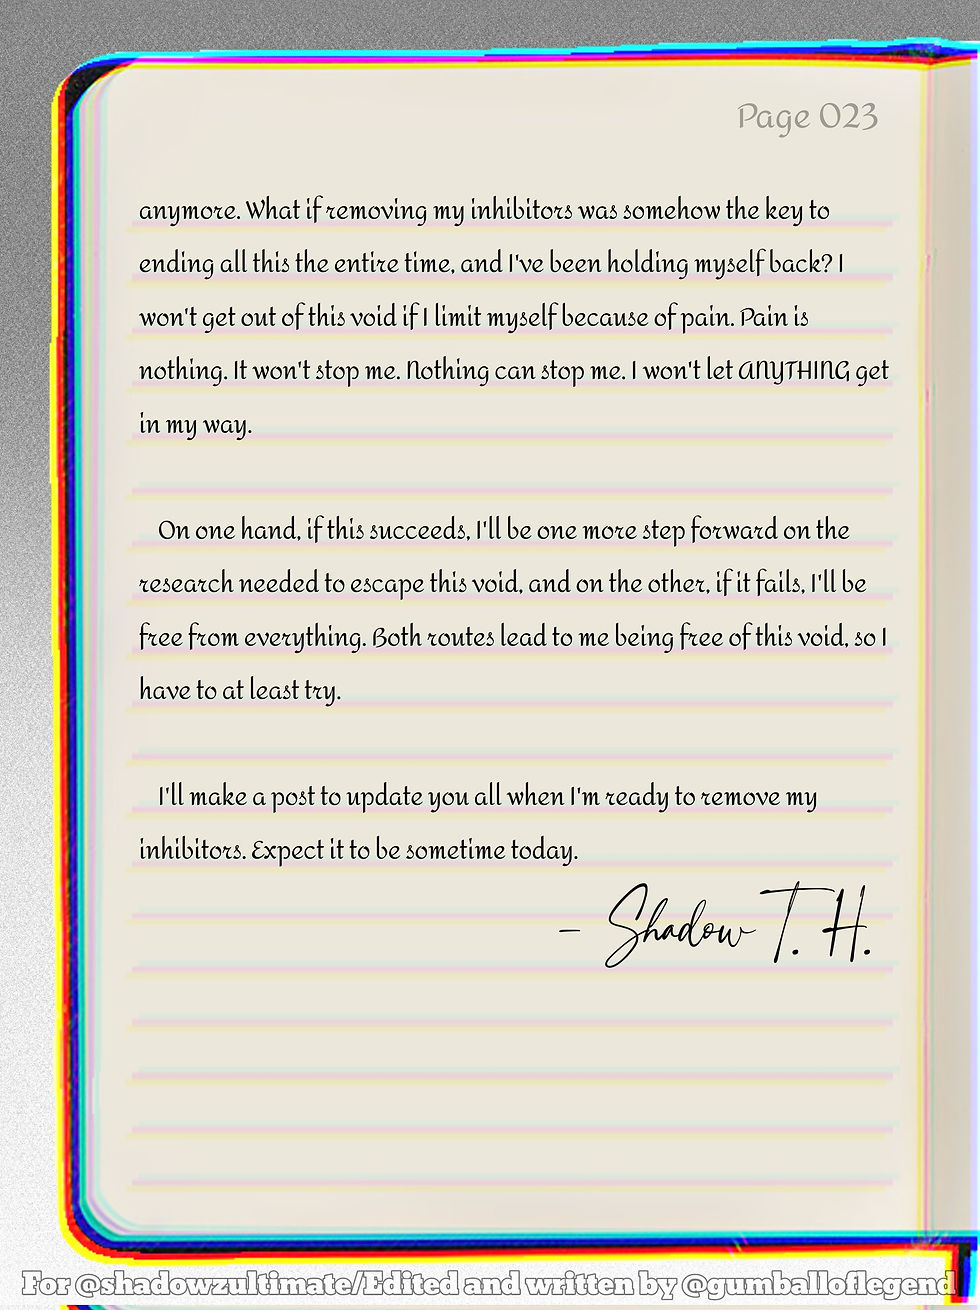 Page 023
anymore. What if removing my inhibitors was somehow the key to
ending all this the entire time, and I've been holding myself back? I
won't get out of this void if I limit myself because of pain. Pain is
nothing. It won't stop me. Nothing can stop me. I won't let ANYTHING get
in my way.
On one hand, if this succeeds, I'll be one more step forward on the
research needed to escape this void, and on the other, if it fails, I'll be
free from everything. Both routes lead to me being free of this void, so I
have to at least try.
I'll make a post to update you all when I'm ready to remove my
inhibitors. Expect it to be sometime today.
- Shadow T. H.
For @shadowzultimate/Edited and written by @gumballoflegend